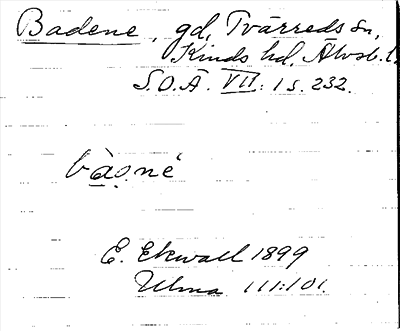 Badene, gd, Tvärreds sn,
Kinds hd, Älvsb. l.
S.O.Ä. VII: 1 s. 232.
bàǫnè
E. Ekwall 1899
Ulma 111:101.